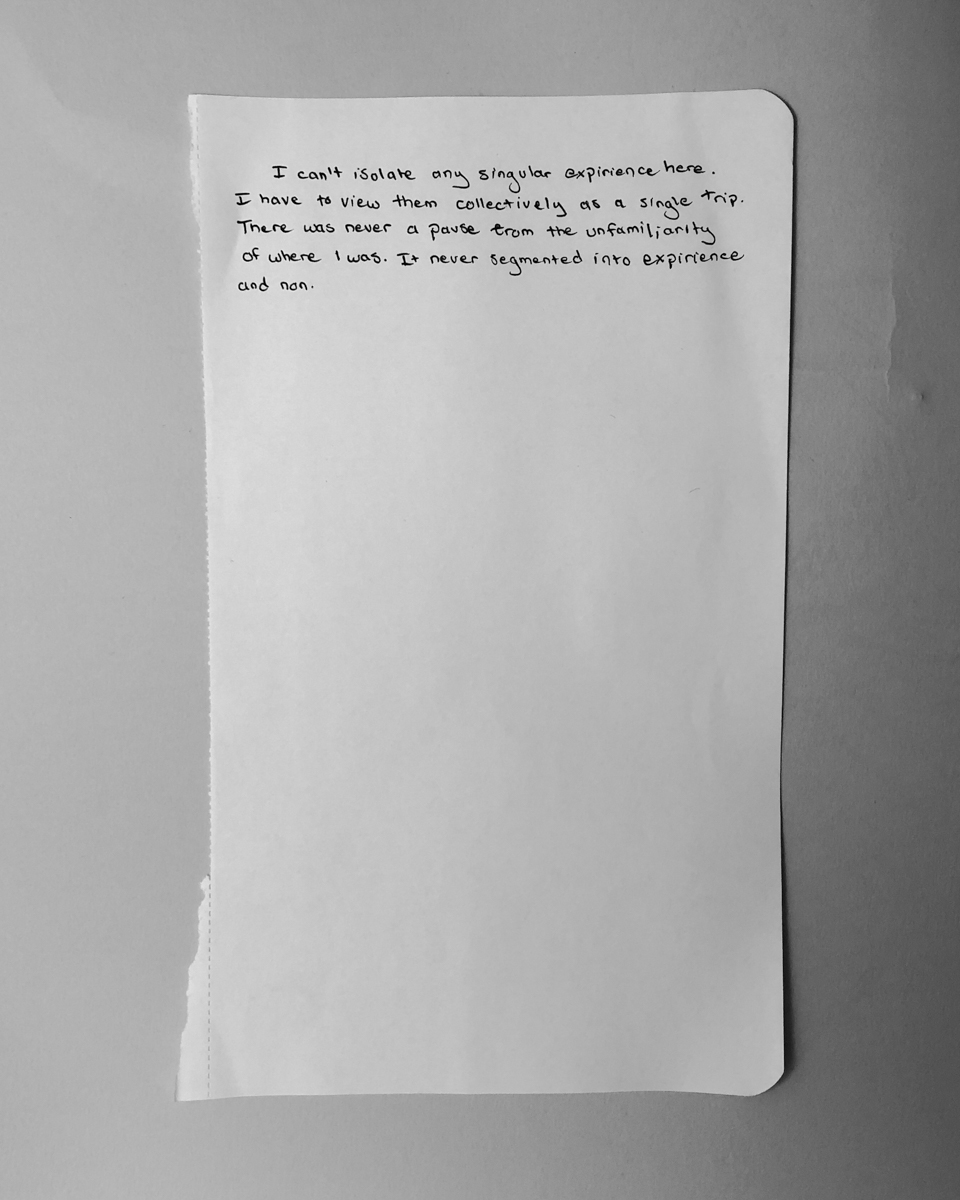 I can't isolate any singular expirience here.
I have to view them collectively as a single trip.
There was never a pause from the unfamiliarity
of where I was. It never segmented into expirience
and non.